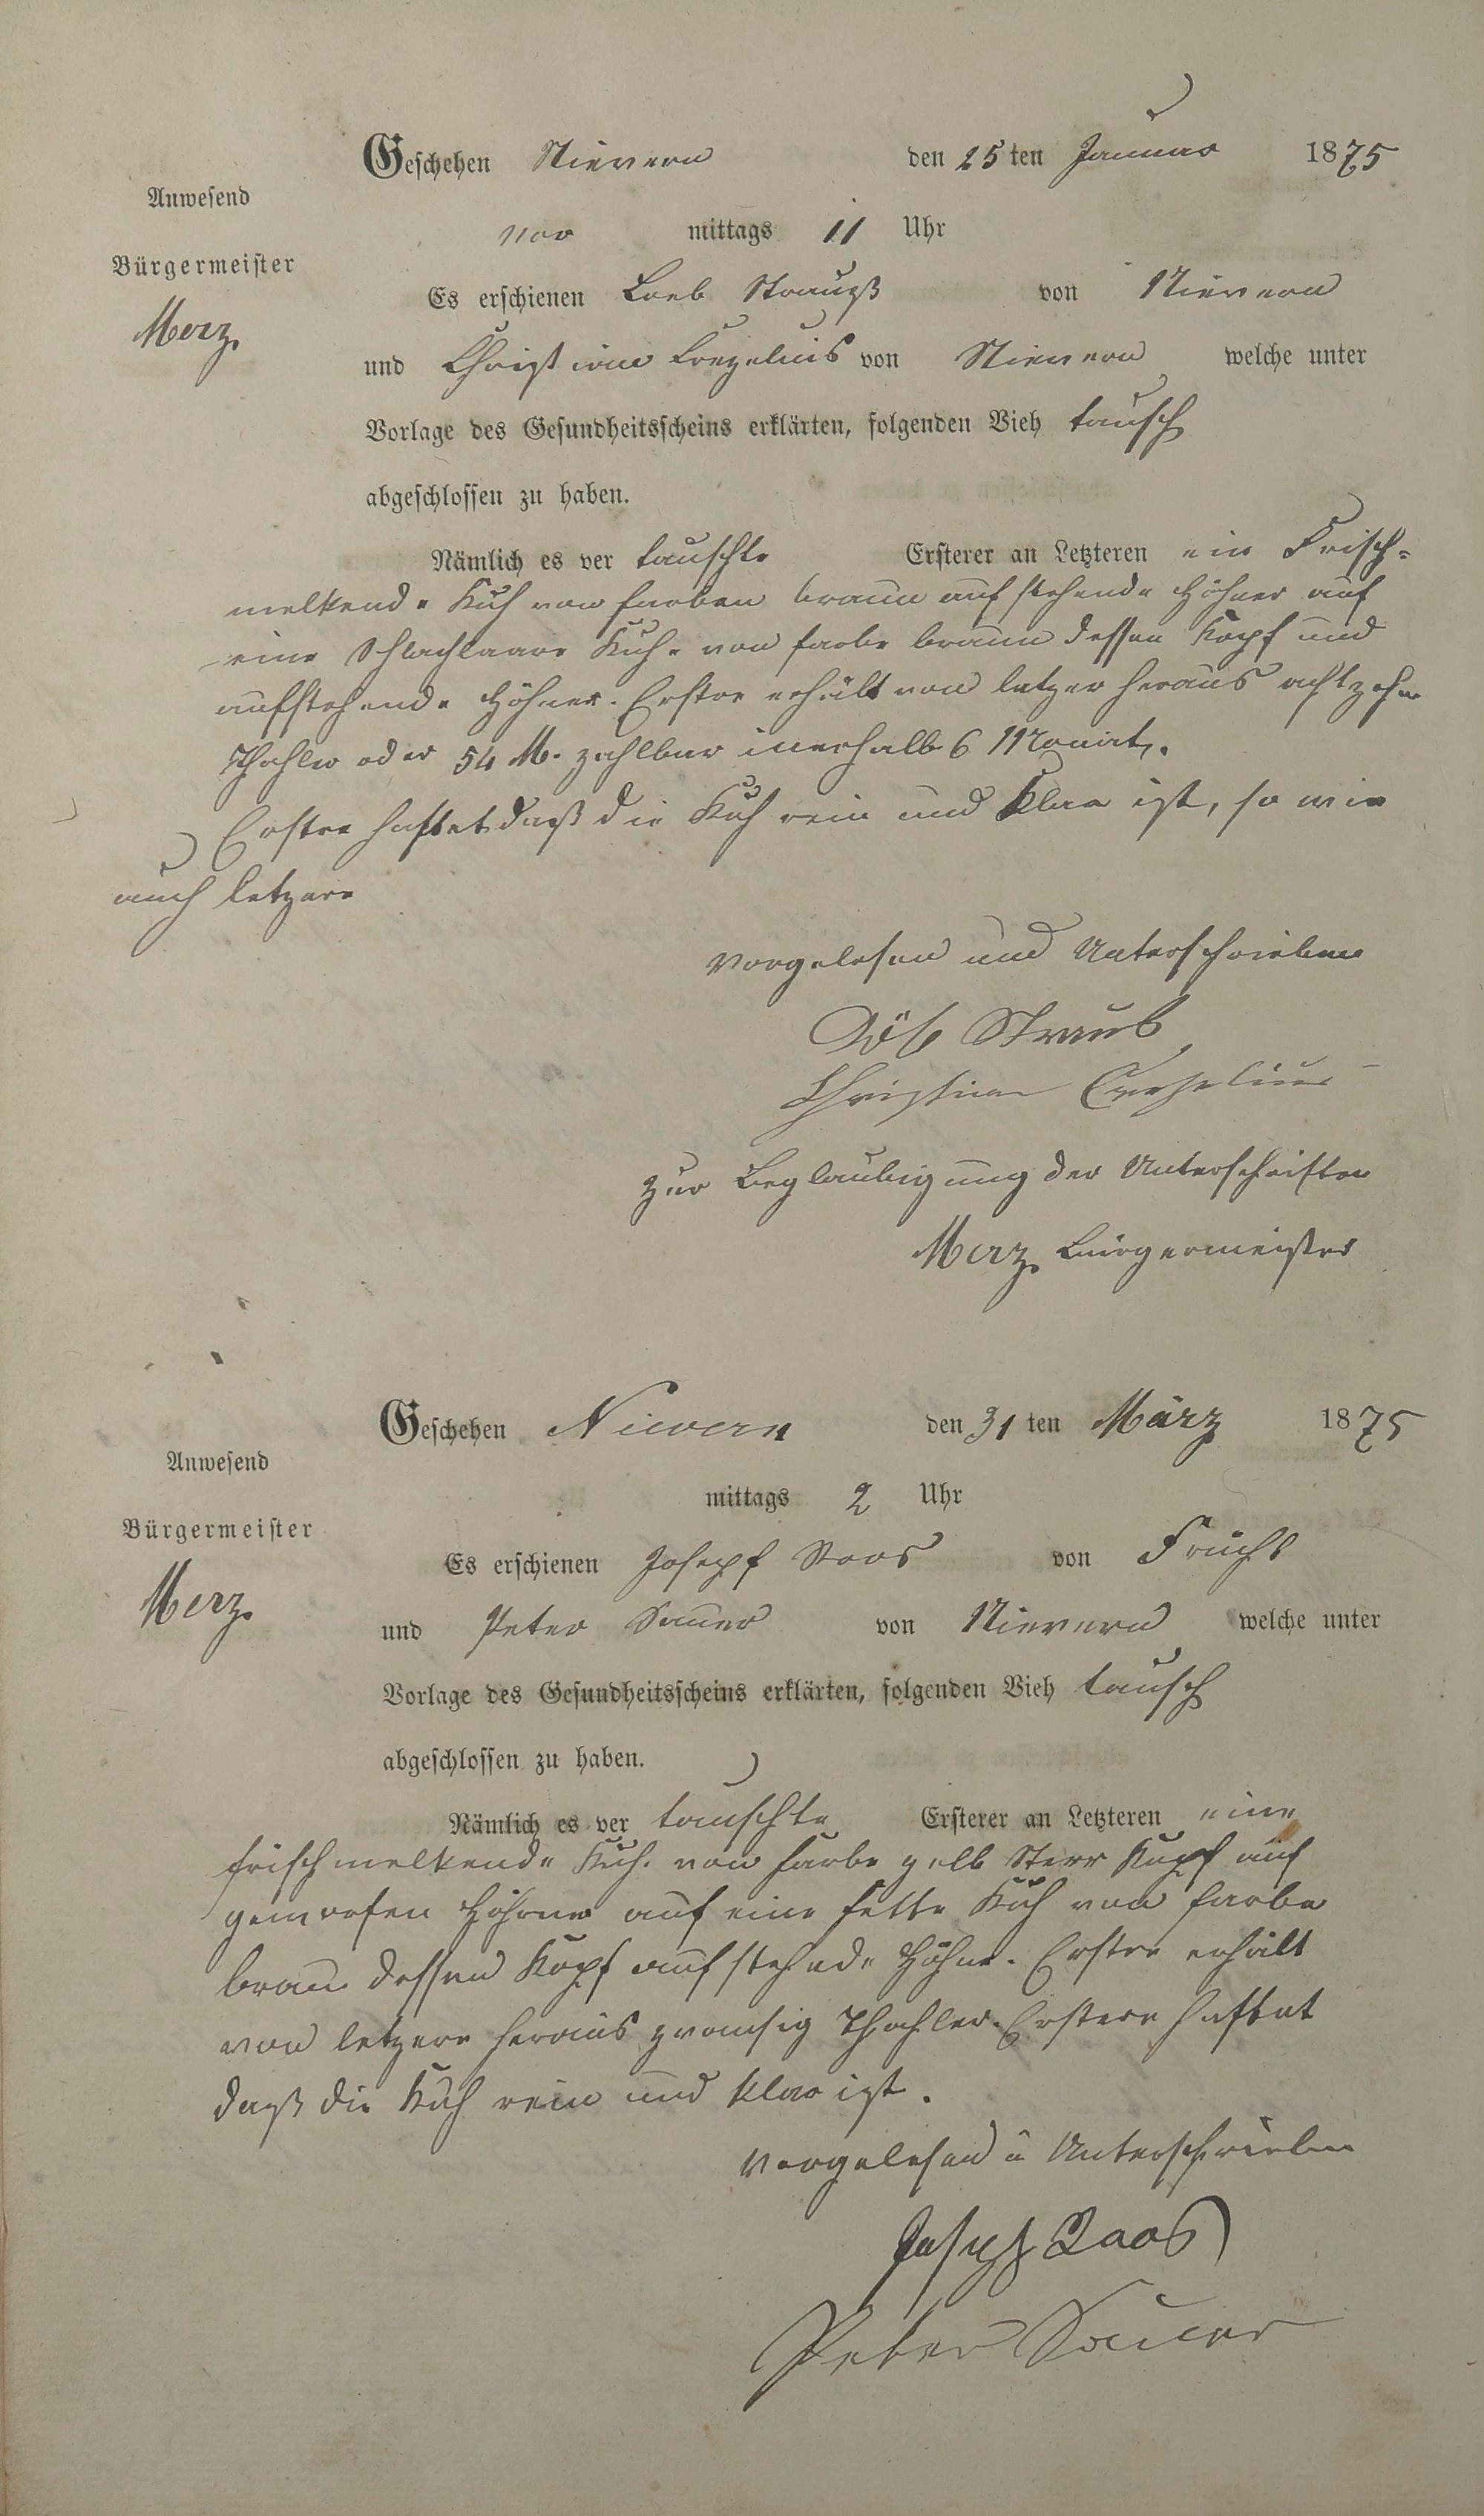 Geschehen Nievern den 25 ten Januar 1875
Anwesend
vor mittags 11 Uhr
Bürgermeister
Es erschienen Loeb Straußs von Nievern
Merz.
und Christian Corzelius von Nievern welche unter
Vorlage des Gesundheitsscheins erklärten, folgenden Vieh tausch
abgeschlossen zu haben.
Nämlich es ver tauschte Ersterer an Letzteren ein Frisch-
melkende Kuh von farben braun auf stehende Höhner auf
eine Schlachbaare Kuh. von farbe braun dessen Kopf und
aufstehende Höhner. Erster erhält von letzer heraus achtzehn
Thahler oder 54 M. zahlbar innerhalb 6 Monat.
Erster haftet daß die Kuh rein und klar ist, so wie
auch letzere
vorgelesen und Unterschrieben
Straus
Christian Corzelius
zur Beglaubigung der Unterschriften
Merz. Bürgermeister
Geschehen Nievern den 31 ten März 1875
Anwesend
mittags 2 Uhr
Bürgermeister
Es erschienen Joseph Roos von Frücht
Merz.
und Peter Sauer von Nievern welche unter
Vorlage des Gesundheitsscheins erklärten, folgenden Vieh tausch
abgeschlossen zu haben.
Nämlich es ver tauschte Ersterer an Letzteren eine
frischmelkende Kuh. von farbe gelb Kopf auf
geworfen Höhrner auf eine fette Kuh von farbe
braun dessen Kopf auf stehnde Höhne. Erster erhält
von letzere heraus zwansig Thahler. Erstere haftet
daß die Kuh rein und klar ist.
vorgelesen u Unterschrieben
Joseph Roos
Peter Sauer